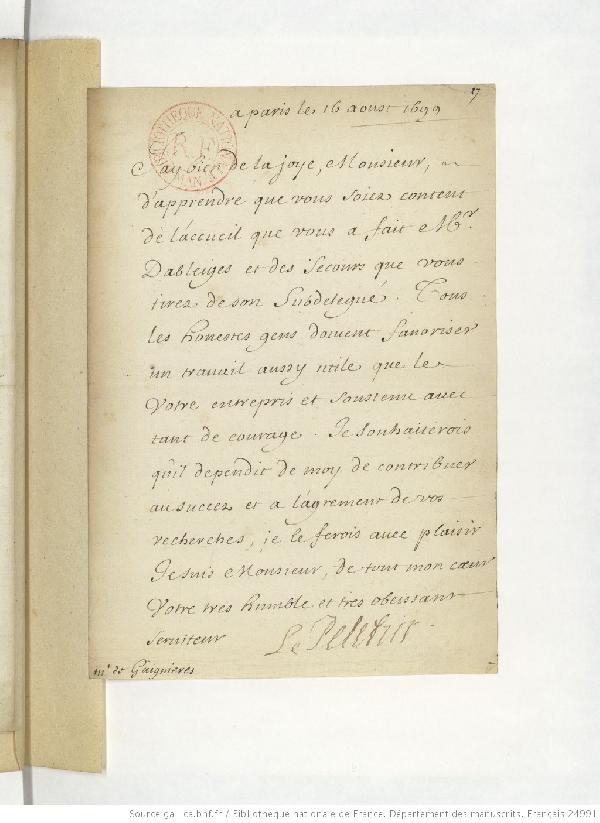 17
a paris le 16 aoust 1699
BIBLIOTHEQUE NATIONALE
R.F.
MAN
J'ay bien de la joye, Monsieur,
d'apprendre que vous soiez content
de l'accueil que vous a fait Mr.
Dableiges et des secours que vous
tirez de son subdelegué. Tous
les honestes gens doivent favoriser
un travail aussy utile que le
Votre entrepris et soustenu avec
tant de courage. Je souhaiterois
qu'il dependit de moy de contribuer
au succez et a l'agrement de vos
recherches, je le ferois avec plaisir
Je suis Monsieur, de tout mon cœur
Votre tres humble et tres obeissant
serviteur Le Peletier
mr. de Gaignieres
Source gallica.bnf.fr / Bibliothèque nationale de France. Département des manuscrits. Français 24991